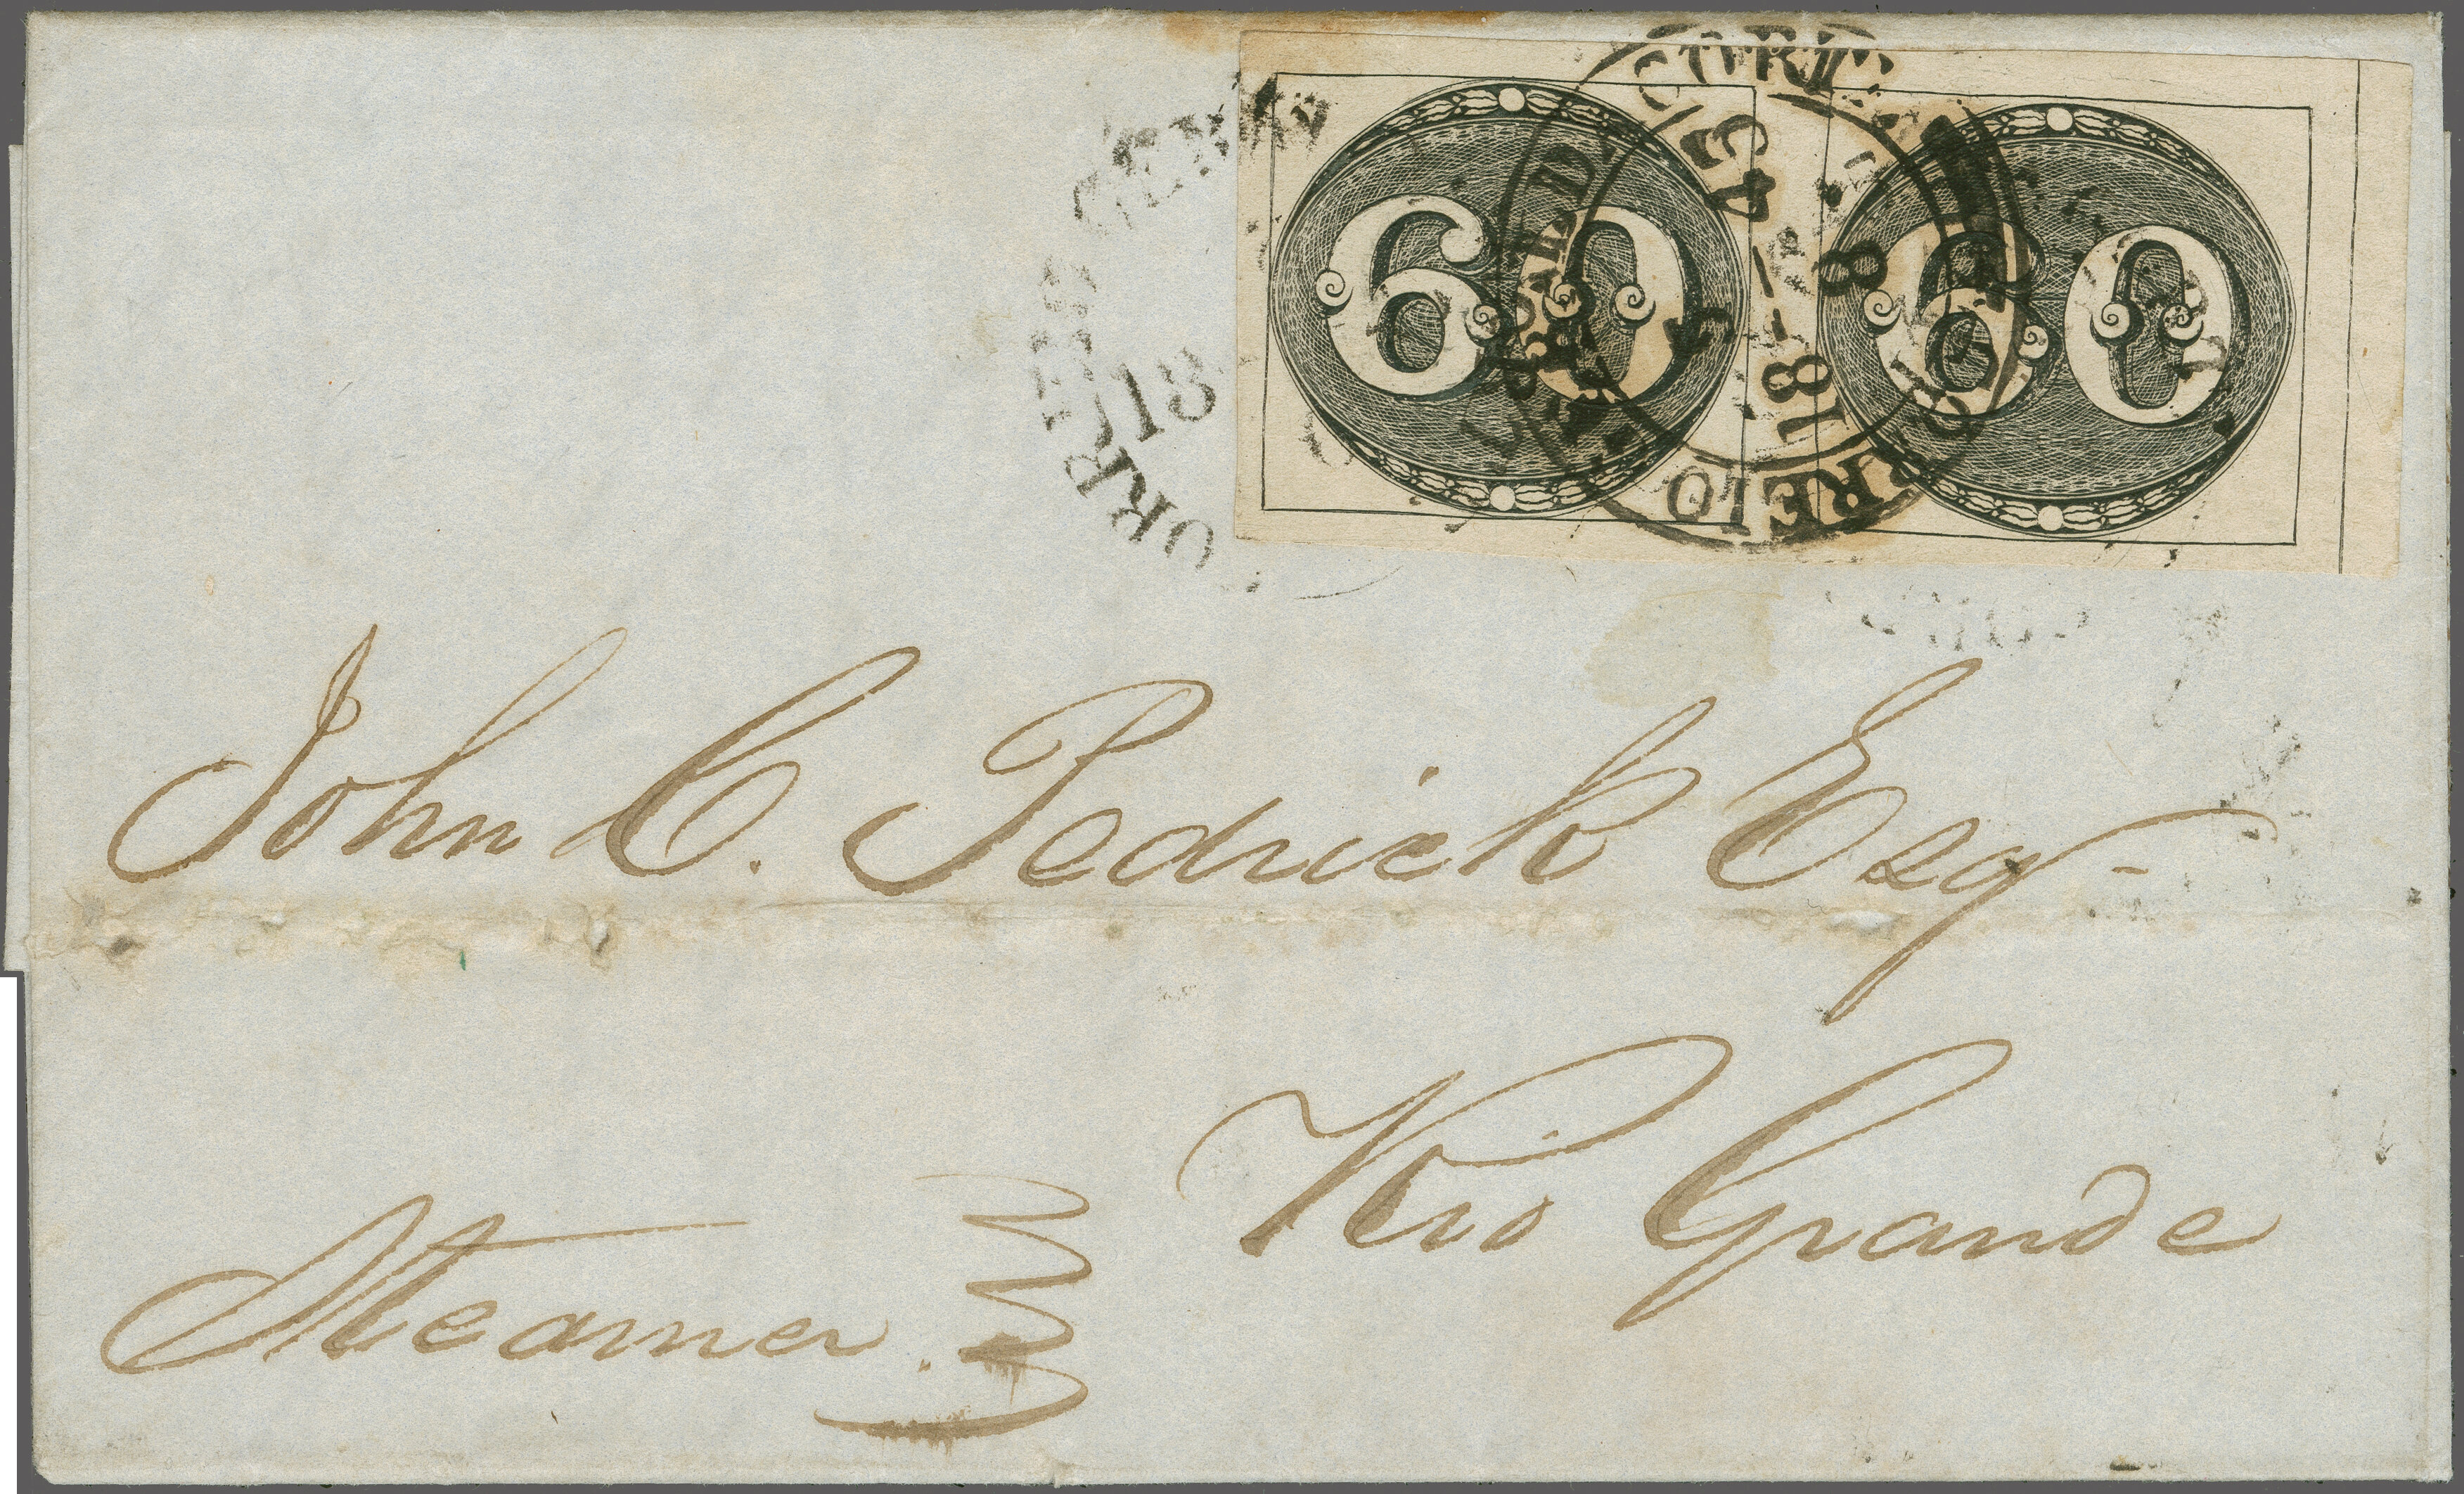 60 60
CORREIO
18
John C. Pedrick Esq
Rio Grande
Steamer.